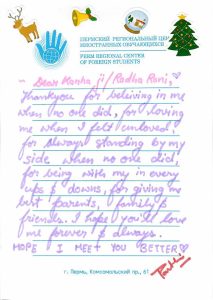 ПЕРМСКИЙ РЕГИОНАЛЬНЫЙ ЦЕНТР
ИНОСТРАННЫХ ОБУЧАЮЩИХСЯ
PERM REGIONAL CENTER
OF FOREIGN STUDENTS
~ Dear Kanha ji/Radha Rani,
Thankyou for beliving in me
when no one did, for loving
me when I felt unloved,
for always standing by my
side when no one did,
for being with my in every
ups & downs, for giving me
best parents, family &
friends. I hope you'll love
me forever & always.
HOPE I MEET YOU BETTER
г. Пермь, Комсомольский пр., 61